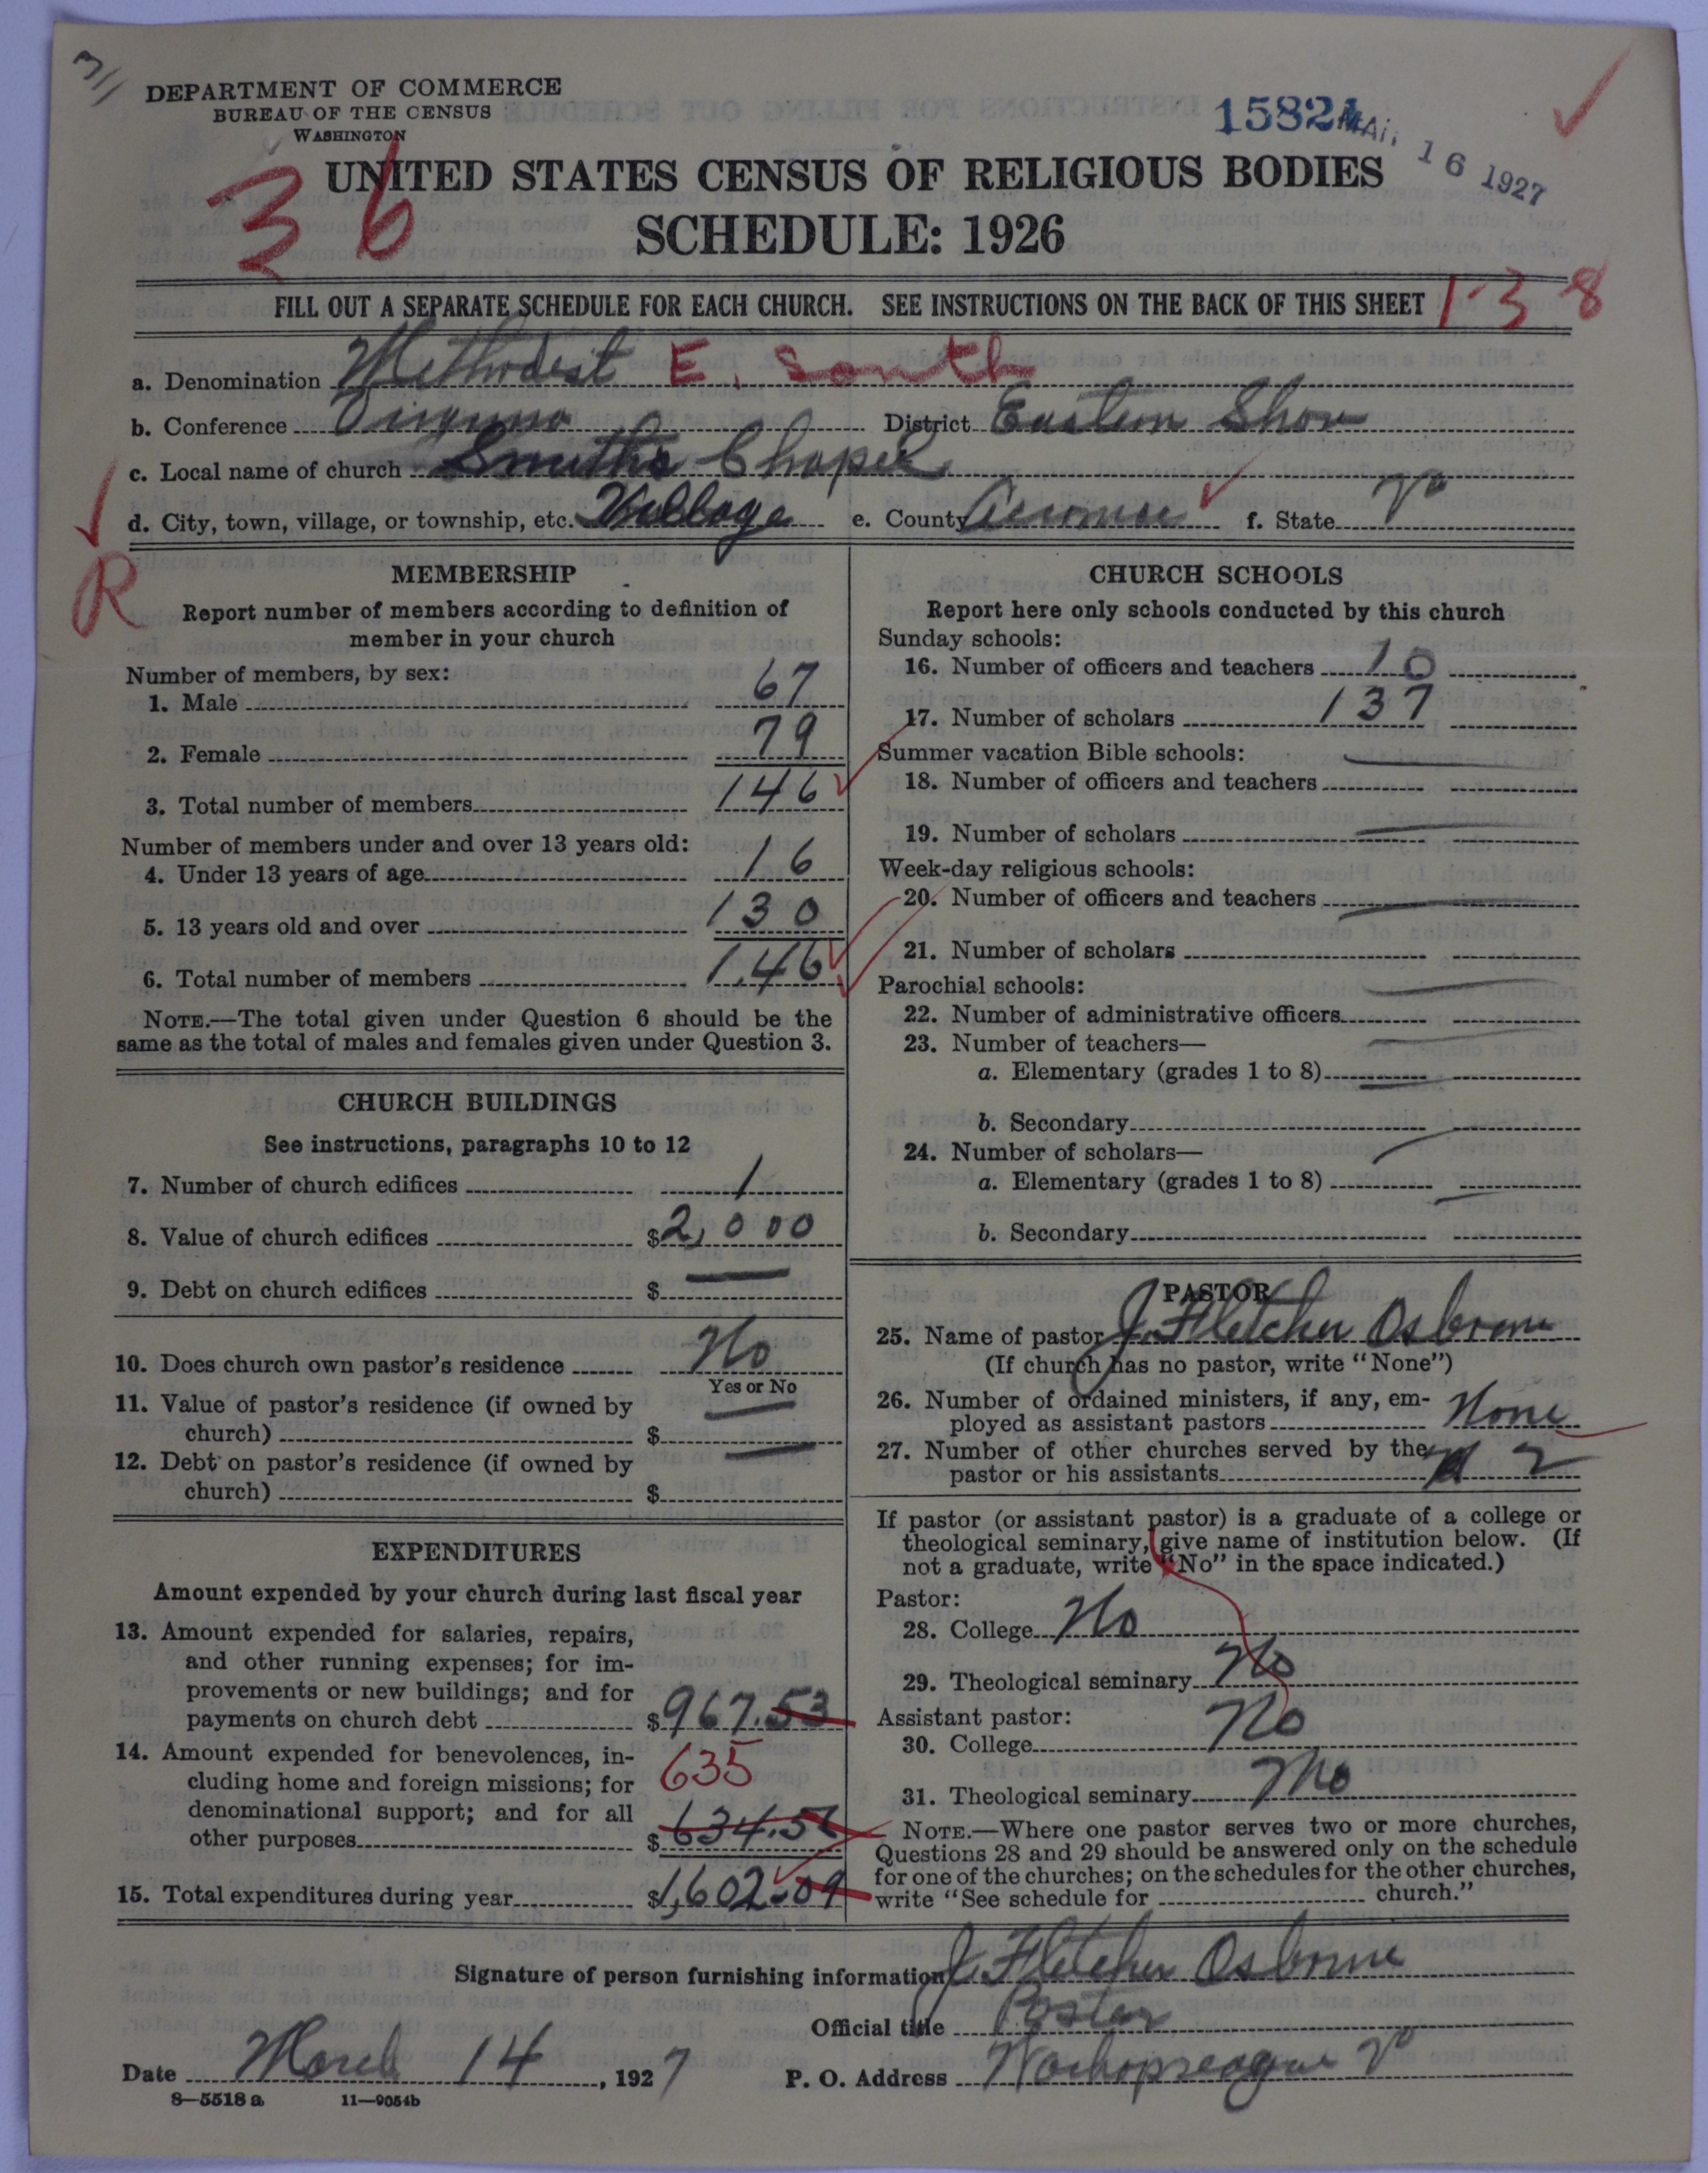 3/1
DEPARTMENT OF COMMERCE
BUREAU OF THE CENSUS
WASHINGTON
15824
MAR 16 1927
36
UNITED STATES CENSUS OF RELIGIOUS BODIES
SCHEDULE: 1926
FILL OUT A SEPARATE SCHEDULE FOR EACH CHURCH. SEE INSTRUCTIONS ON THE BACK OF THIS SHEET 1-3-8
a. Denomination Methodist E. South
b. Conference Virginia District Eastern Shore
c. Local name of church Smiths Chapel
d. City, town, village, or township, etc. Village e. County Accomac f. State Va
R
MEMBERSHIP
Report number of members according to definition of
member in your church
Number of members, by sex:
1. Male 67
2. Female 79
3. Total number of members 146
Number of members under and over 13 years old:
4. Under 13 years of age 16
5. 13 years old and over 130
6. Total number of members 146
NOTE.—The total given under Question 6 should be the
same as the total of males and females given under Question 3.
CHURCH BUILDINGS
See instructions, paragraphs 10 to 12
7. Number of church edifices 1
8. Value of church edifices $2,000
9. Debt on church edifices $ —
10. Does church own pastor's residence No
Yes or No
11. Value of pastor's residence (if owned by
church) $ —
12. Debt on pastor's residence (if owned by
church) $ —
EXPENDITURES
Amount expended by your church during last fiscal year
13. Amount expended for salaries, repairs,
and other running expenses; for im-
provements or new buildings; and for
payments on church debt $967.53
14. Amount expended for benevolences, in-
cluding home and foreign missions; for 635
denominational support; and for all
other purposes $634.56
15. Total expenditures during year $1,602.09
CHURCH SCHOOLS
Report here only schools conducted by this church
Sunday schools:
16. Number of officers and teachers 10
17. Number of scholars 137
Summer vacation Bible schools:
18. Number of officers and teachers
19. Number of scholars
Week-day religious schools:
20. Number of officers and teachers
21. Number of scholars
Parochial schools:
22. Number of administrative officers
23. Number of teachers—
a. Elementary (grades 1 to 8)
b. Secondary
24. Number of scholars—
a. Elementary (grades 1 to 8)
b. Secondary
PASTOR
25. Name of pastor J. Fletcher Osborne
(If church has no pastor, write "None")
26. Number of ordained ministers, if any, em-
ployed as assistant pastors None
27. Number of other churches served by the
pastor or his assistants 2
If pastor (or assistant pastor) is a graduate of a college or
theological seminary, give name of institution below. (If
not a graduate, write "No" in the space indicated.)
Pastor:
28. College No
29. Theological seminary No
Assistant pastor:
30. College No
31. Theological seminary No
NOTE.—Where one pastor serves two or more churches,
Questions 28 and 29 should be answered only on the schedule
for one of the churches; on the schedules for the other churches,
write "See schedule for church."
Signature of person furnishing information J. Fletcher Osborne
Official title Pastor
Date March 14, 1927 P. O. Address Wachapreague Va
8—5518 a 11—9054b